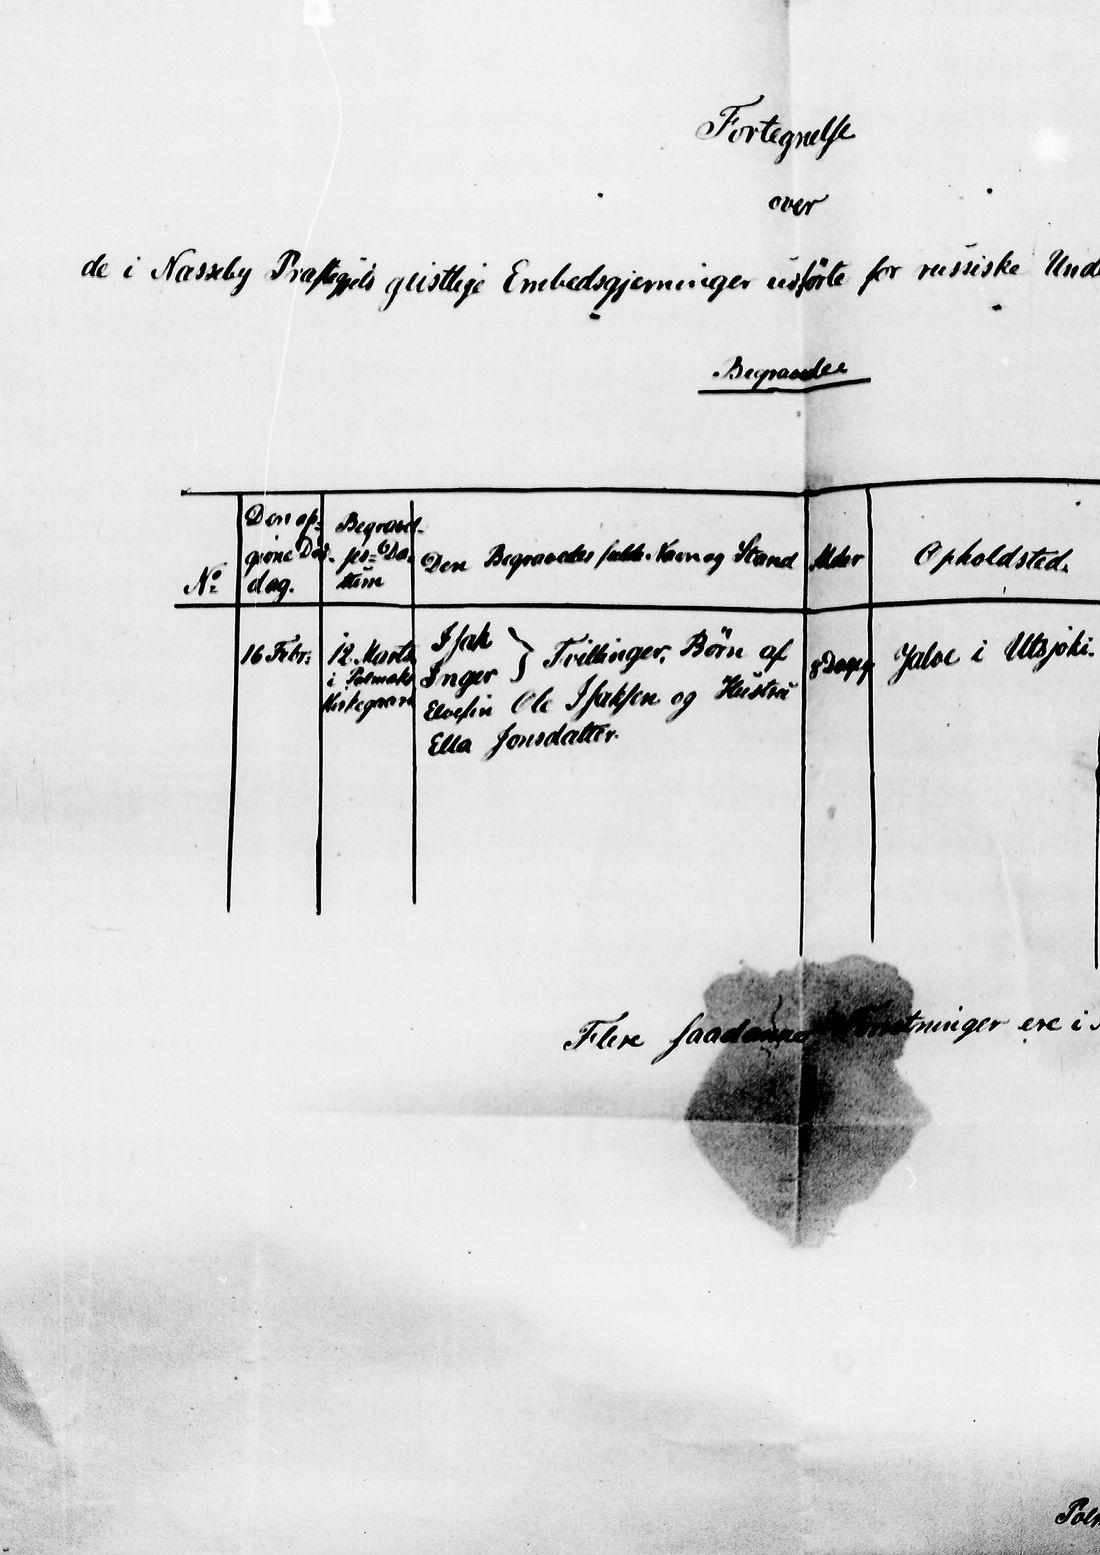 Fortegnelse
over
de i Næsseby Præstegjeld geistlige Embedsgjerninger udførte for russiske Und
Begravelse
No
Den op-
givne Døds-
dag.
Begravel-
ses-Da-
tum
Den Begravedes fulde Navn og Stand
Alder
Opholdsted.
16 Febr:
12 Marts
i Polmaks
Kirkegaard
Isak
Inger } Tvillinger, Børn af
Ole Isaksen og Hustru
Ella Jonsdatter.
8 Dage
Jalve i Utsjoki.
Flere saadanne Forretninger ere i
Polm